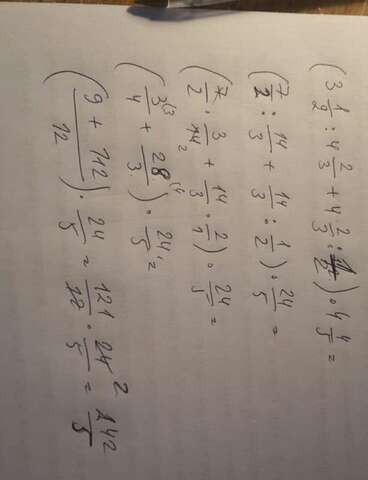 (3 1/2 : 4 2/3 + 4 2/3 : 1/2) · 4 4/5 =
(7/2 : 14/3 + 14/3 : 1/2) · 24/5 =
(7/2 · 3/14 2 + 14/3 · 2/1) · 24/5 =
(3/4 (3 + 28/3 (4) · 24/5 =
(9 + 112/12) · 24/5 = 121/12 · 24 2/5 = 242/5